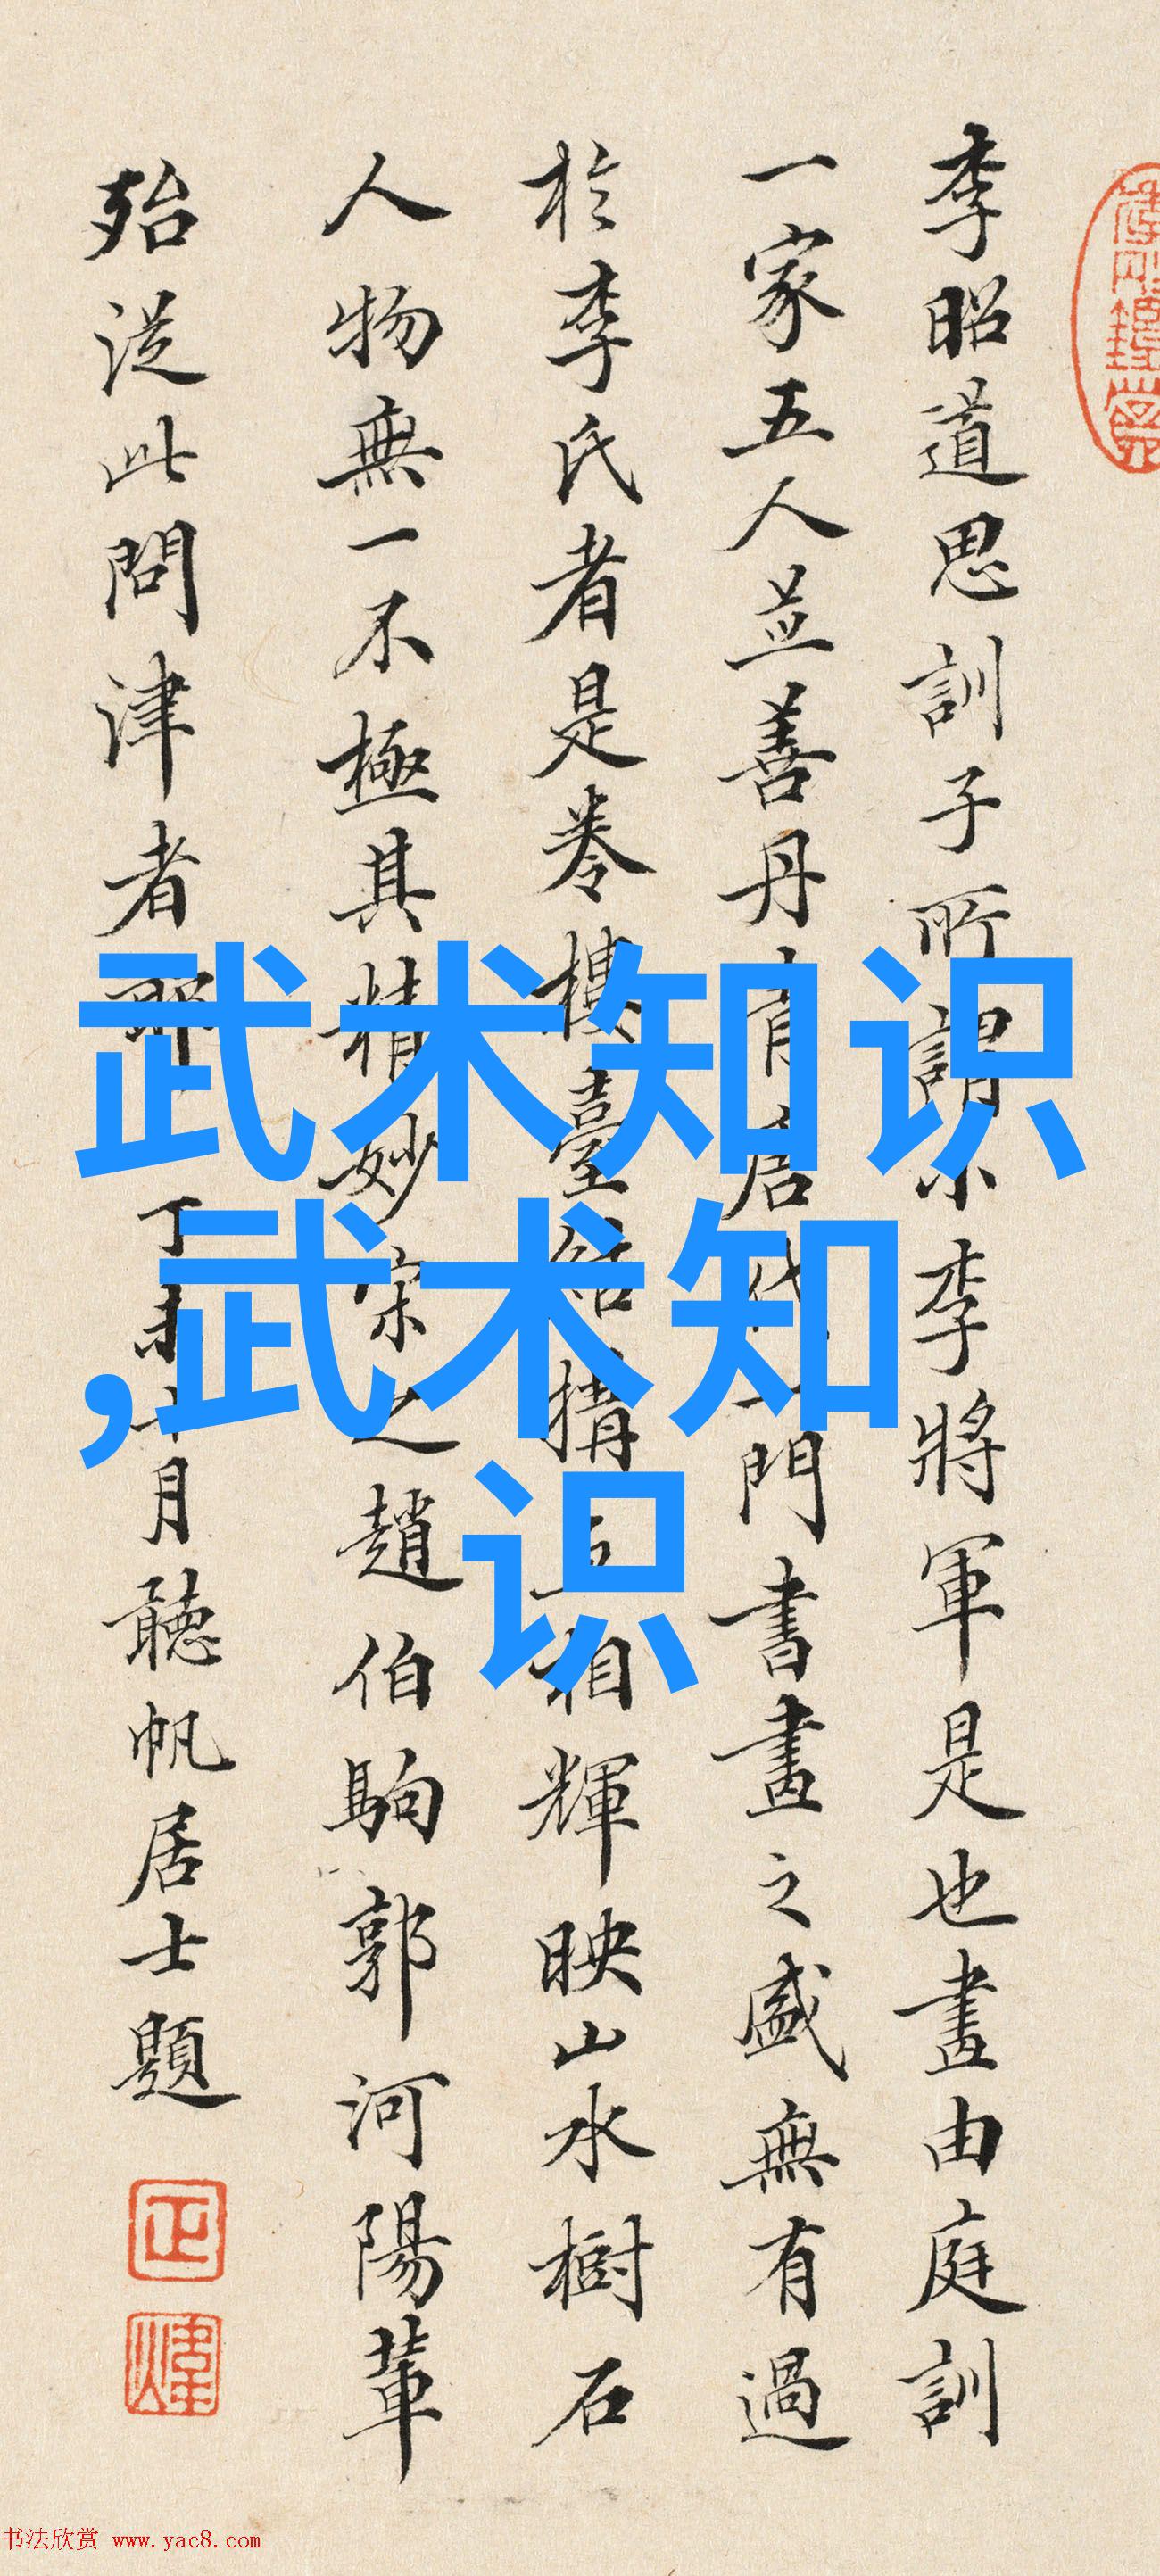 李昭道思訓子所謂小李將軍是也畫由庭訓
一家五人並善丹青唐代一門書畫之盛無有過
於李氏者是卷樓臺結構互相輝映山水樹石
人物無一不極其精妙宋之趙伯駒郭河陽輩
殆從此問津者耶 丁未十月聽帆居士題
正
煒
武术知识
,武术知
识
书法欣赏 www.yac8.com